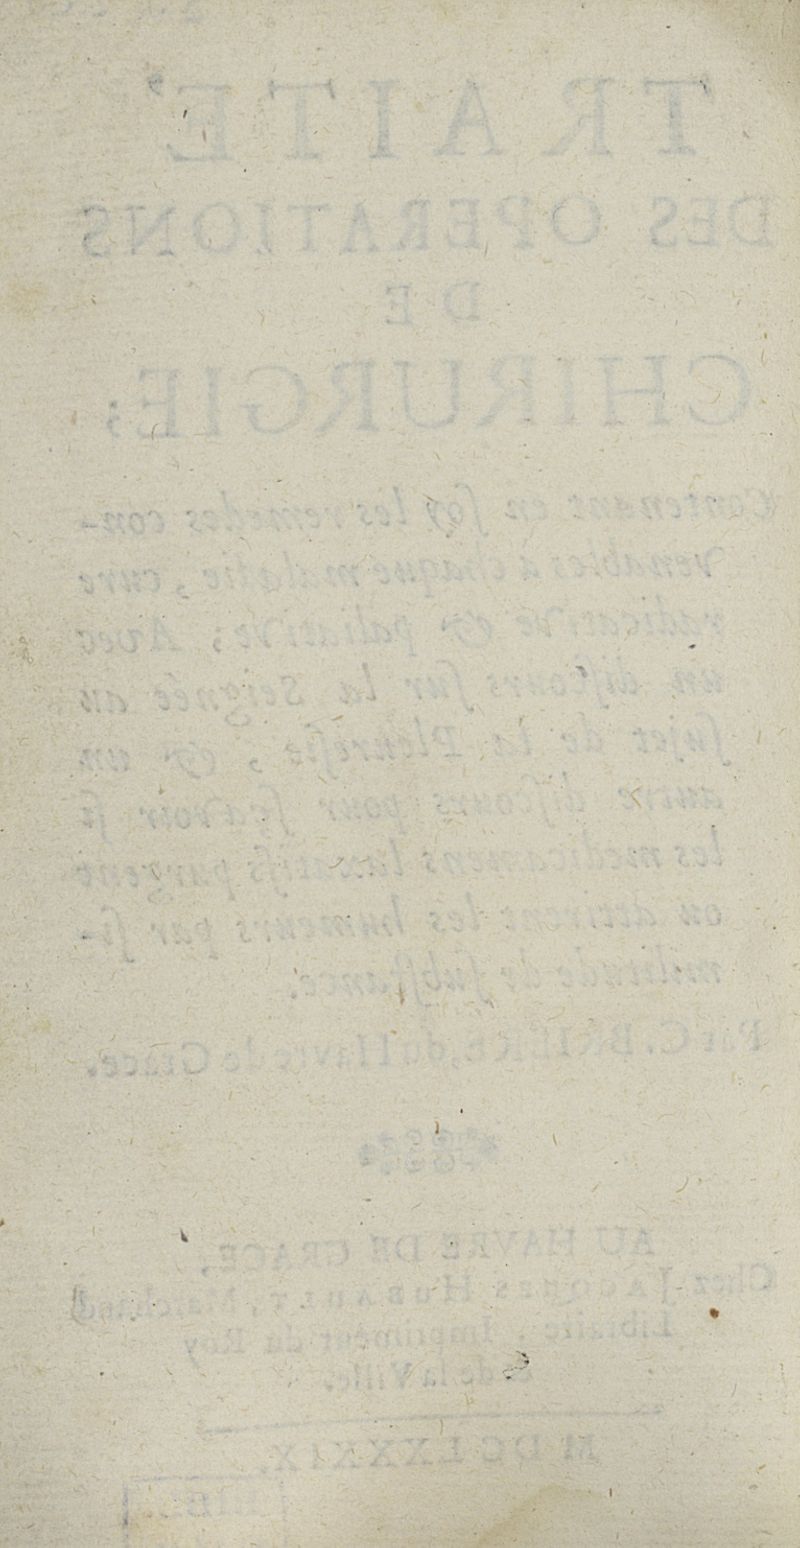 TRAITE'
DES OPERATIONS
DE
CHIRURGIE;
Contenant en ſoy les remedes con-
venables a chaque maladie, cure
radicative & paliative; Avec
un diſcours ſur la Seignée au
ſujet de la Pleureſie, & un
autre diſcours pour ſçavoir ſi
les medicamens laxatifs purgent
ou attirent les humeurs par ſi-
militude de ſubſtance.
Par C. BRIERE, du Havre de Grace.
AU HAVRE DE GRACE,
Chez JACQUES HUBAULT, Marchand
Libraire, Imprimeur du Roy
& de la Ville.
MDCLXXXIX.